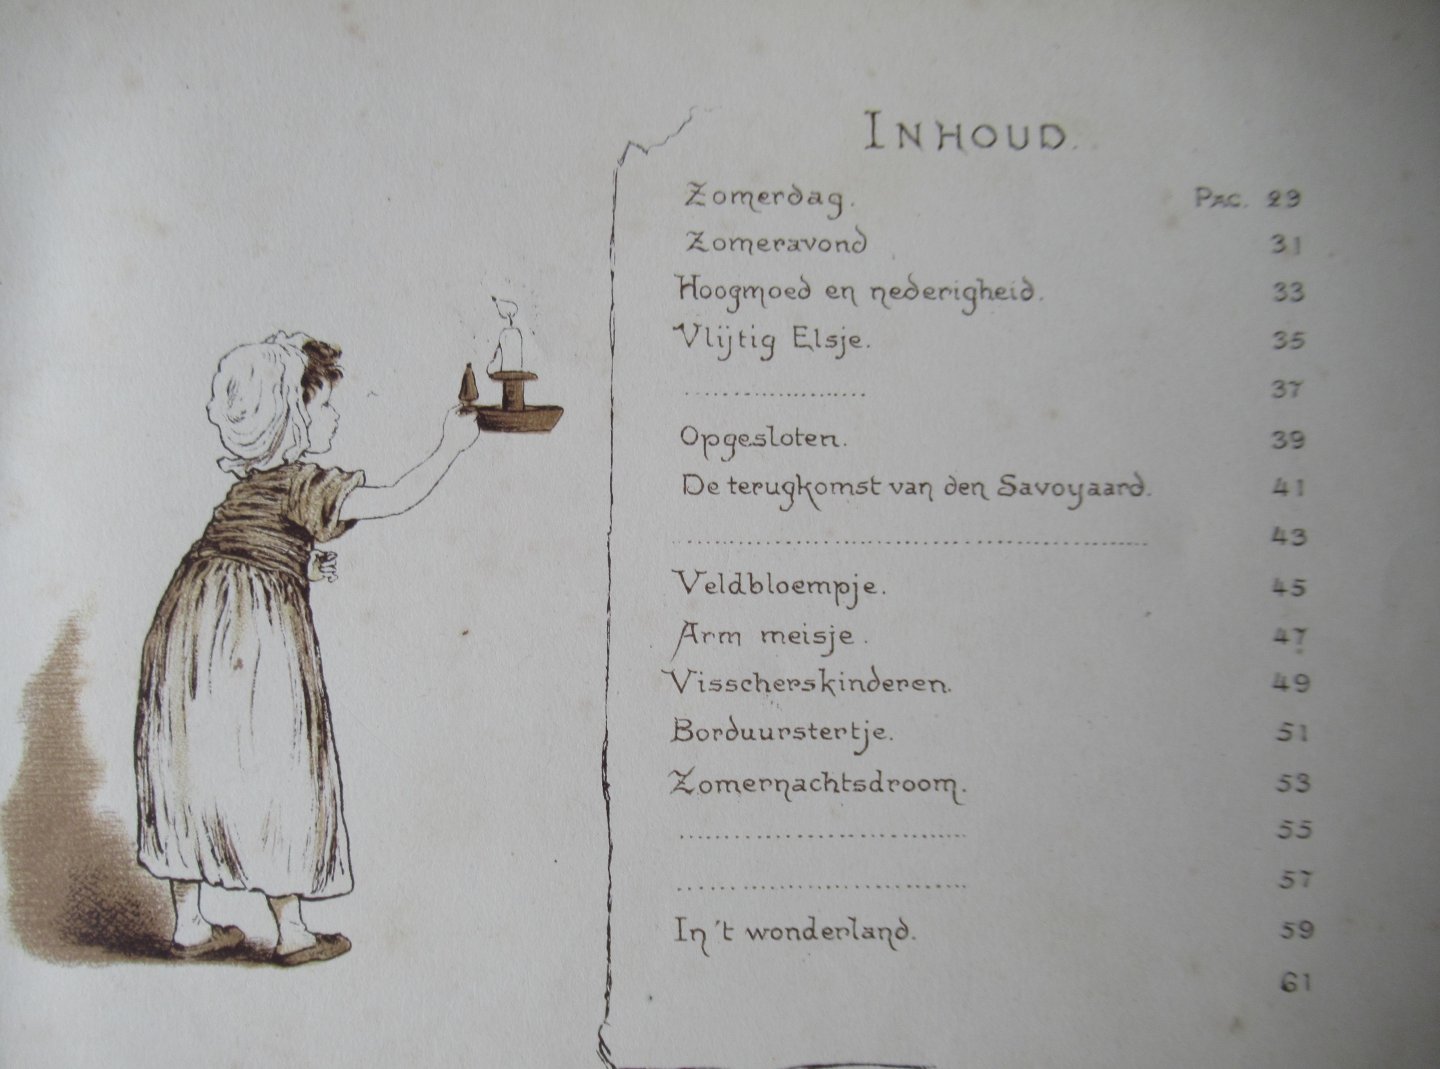 INHOUD.
Zomerdag. PAG. 29
Zomeravond 31
Hoogmoed en nederigheid. 33
Vlijtig Elsje. 35
.................... 37
Opgesloten. 39
De terugkomst van den Savoyaard. 41
.................................................. 43
Veldbloempje. 45
Arm meisje. 47
Visscherskinderen. 49
Borduurstertje. 51
Zomernachtsdroom. 53
.............................. 55
.............................. 57
In 't wonderland. 59
61